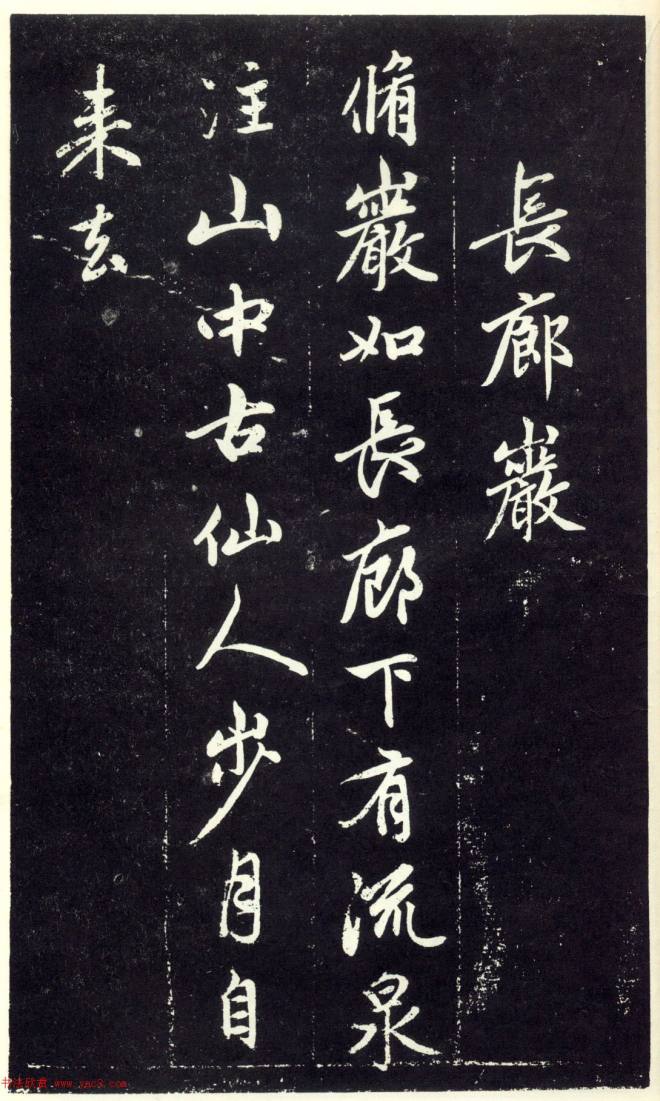 長廊巖
脩巖如長廊下有流泉
注山中古仙人步月自
来去
书法欣赏 www.yac3.com